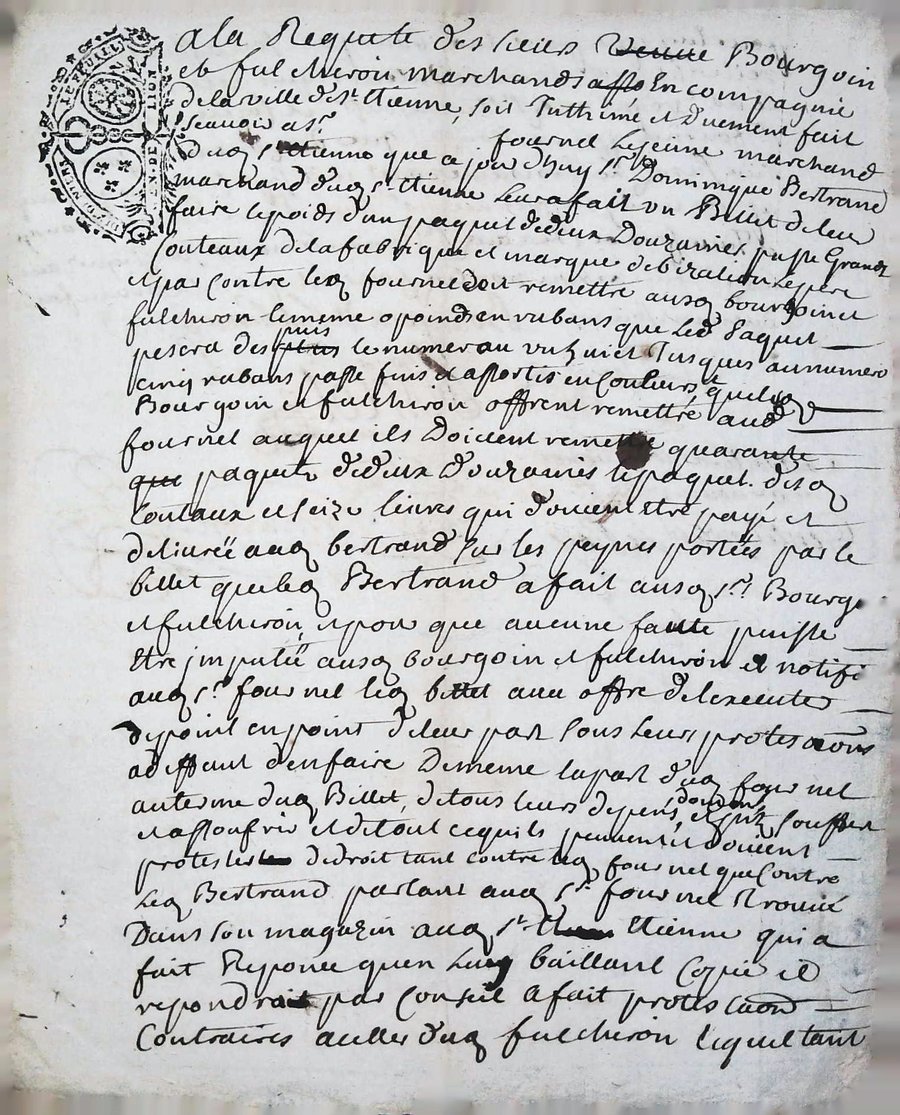 a la Requete des sieurs veuve Bourgoin
et fulcheron marchands asso En compagnie
de la ville de St. Etienne, soit Inthimé et duement fait
Scauoir a sr. fournel lejeune marchand
dud St Etienne que ce jourdhuy Sr. Dominique Bertrand
marchand dud St. Etienne leur a fait un Billet de leur
faire le poids d'un paquet de deux Douzaines passe Grand
Couteaux de la fabrique et marque de le pere
et par contre led fournel doit remettre ausd bourgoin et
fulchiron le meme poind en rubans que led Paquet
pesera des puis plus le numero un huict Jusques au numero
cinq rubans passe fins et assortis en Couleurs et que led
Bourgoin et fulchiron offrent remettre aud
fournel auquel ils Doivent remettre quarante
que paquets de deux Douzaines le paquet desd
Coutaux et seize livres qui doivent Etre payé et
deliureë aud bertrand sur les peynes porteës par le
billet que led Bertrand a fait ausd srs Bourgo
et fulchiron, et pour que aucune faute puisse
Etre jmputeë ausd bourgoin et fulchiron et notifi
aud sr. fournel led billet avec offre de lexecuter
de point en point de leur part sous leurs protestaons
a deffaut den faire De meme la part dud fournel
au terme dud Billet, de tous leurs depens, dom. souffert
et a souffrir et de tout ce quils peuvent et doivent
protester de droit tant contre led fournel que Contre
Led Bertrand parlant aud sr. fournel trouvé
Dans son magazin aud St Etienne qui a
fait Reponce quen luy baillant Copie il
repondrait par Conseil a fait protestaons
Contraires a celles dud fulchiron lequel tant